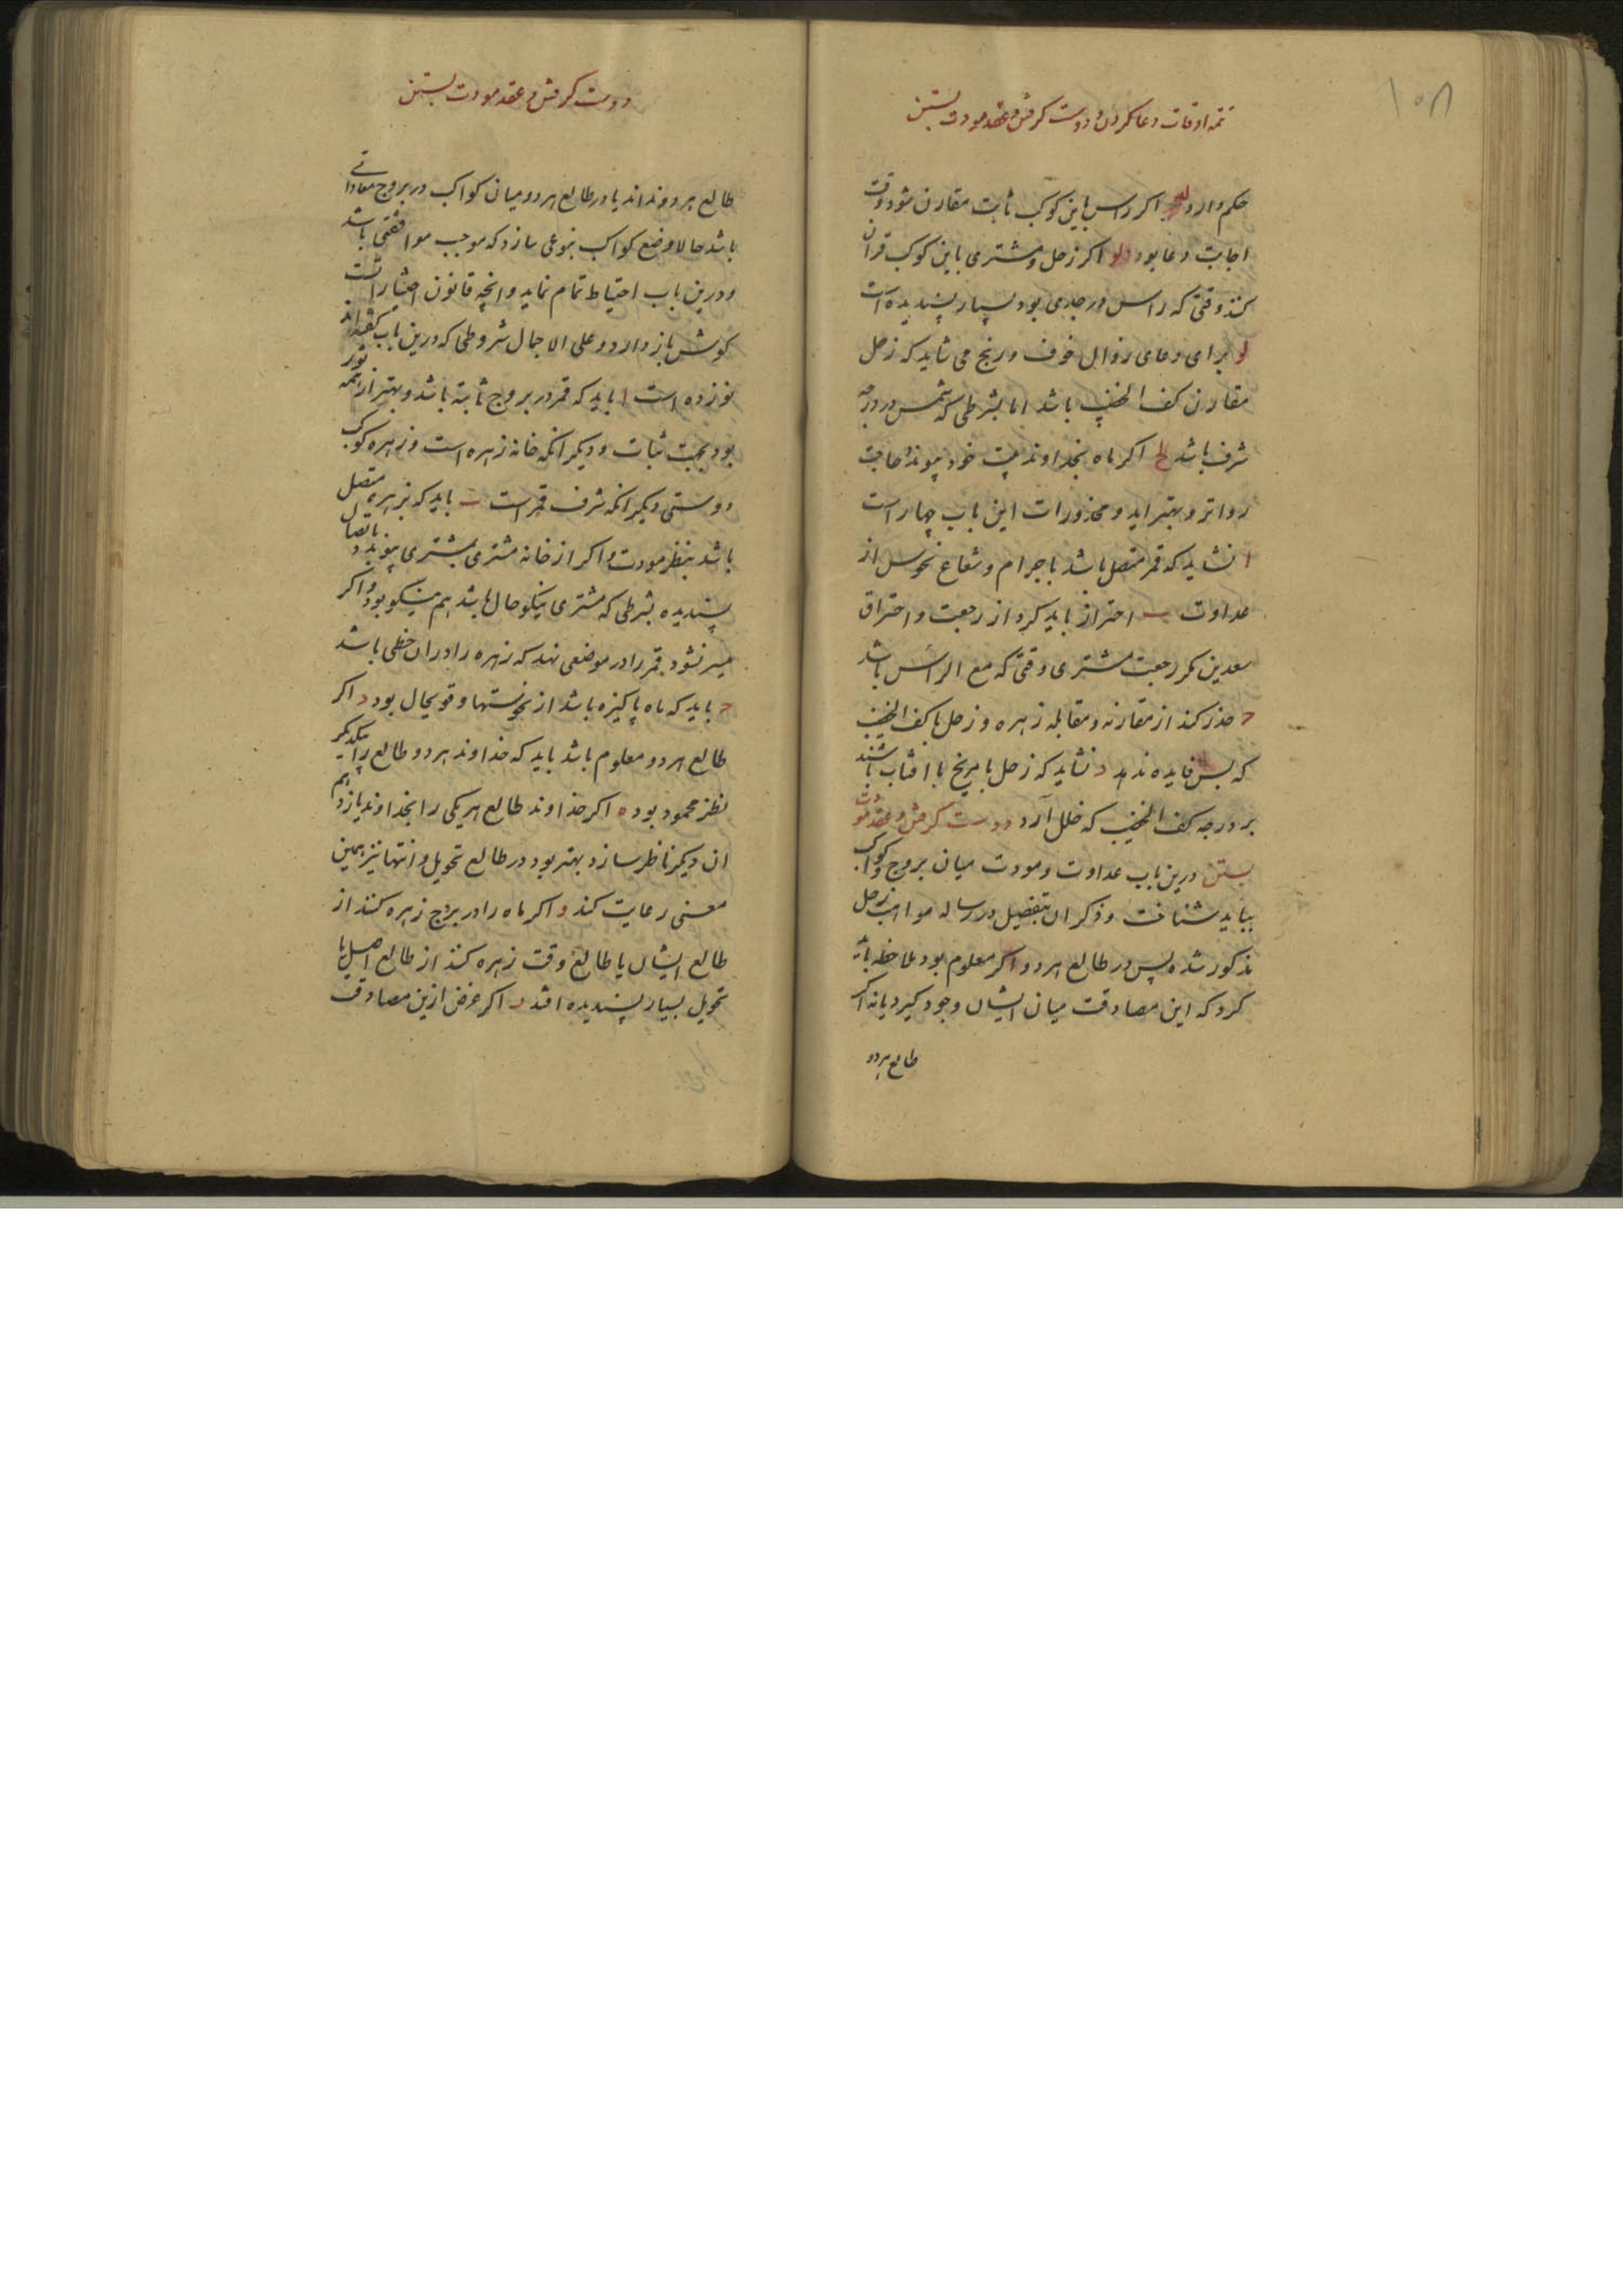 ۱۰۸
تتمه اوقات دعا کردن و دوست کرفتن و عقد مودت بستن
حکم دارد له اکر راس باین کوکب ثابت مقارن شود وقت
اجابت دعا بود لو اکر زحل و مشتری باین کوکب قران
کنند وقتی که راس در جدی بود بسیار پسندیده است
لز برای دعای زوال خوف و رنج می شاید که زحل
مقارن کف الخضیب باشد اما بشرطی که شمس در درجه
شرف باشد لح اکر ماه بخداوند بیت خود پیوندد حاجت
رواتر و بهتر اید و محذورات این باب چهار است
ا نشاید که قمر متصل باشد باجرام و شعاع نحوس از
عداوت ب احتراز باید کرد از رجعت و احتراق
سعدین مکر رجعت مشتری وقتی که مع الراس باشد
ح حذر کند از مقارنه و مقابله زهره و زحل با کف الخضیب
که بس فایده ندهد د نشاید که زحل با مریخ با افتاب باشند
بر درجه کف الخضیب که خلل آرد دوست کرفتن و عقد مودت
بستن درین باب عداوت و مودت میان بروج و کواکب
بباید شناخت و ذکر ان بتفصیل در رساله مواهب زحل
مذکور شده پس در طالع هر دو اکر معلوم بود ملاحظه باید
کرد که این مصادقت میان ایشان وجود کیرد یا نه اکر
طالع هر دو
دوست کرفتن و عقد مودت بستن
طالع هر دو ندانند یا در طالع هر دو میان کواکب در بروج معاداتی
باشد حالا وضع کواکب بنوعی سازد که موجب موافقتی باشد
و درین باب احتیاط تمام نماید و انچه قانون اختیاراتست
کوش باز دارد و علی الاجمال شروطی که درین باب کفته اند
نوزده است ا باید که قمر در بروج ثابته باشد و بهتر از همه ثور
بود بجهت ثبات و دیکر انکه خانه زهره است و زهره کوکب
دوستی دیکر انکه شرف قمر است ب باید که بزهره متصل
باشد بنظر مودت و اکر از خانه مشتری بمشتری پیوندد باتصال
پسندیده بشرطی که مشتری نیکو حال باشد هم نیکو بود و اکر
میسر نشود قمر را در موضعی نهد که زهره را در ان حظی باشد
ح باید که ماه پاکیزه باشد از نحوستها و قویحال بود د اکر
طالع هر دو معلوم باشد باید که خداوند هر دو طالع را بیکدیکر
نظر محمود بود ه اکر خداوند طالع هر یکی را بخداوند یازدهم
ان دیکر ناظر سازد بهتر بود در طالع تحویل و انتها نیز همین
معنی رعایت کند و اکر ماه را در بروج زهره کنند از
طالع ایشان یا طالع وقت زهره کنند از طالع اصل یا
تحویل بسیار پسندیده افتد ر اکر غرض ازین مصادقت